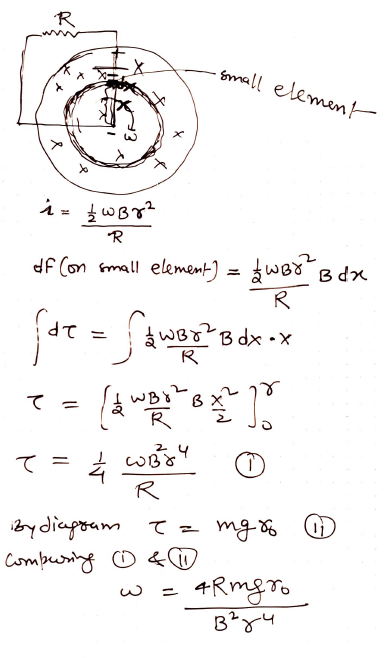 R
x x x x x x x x x x
dx
small element
x
ω
i = ½ωBr² / R
dF (on small element) = ½ωBr² / R B dx
∫dτ = ∫ ½ωBr² / R B dx · x
τ = [½ ωBr² / R B x²/2]₀ʳ
τ = 1/4 ωB²r⁴ / R ①
By diagram τ = mgr₀ ⑪
Comparing ① & ⑪
ω = 4Rmgr₀ / B²r⁴